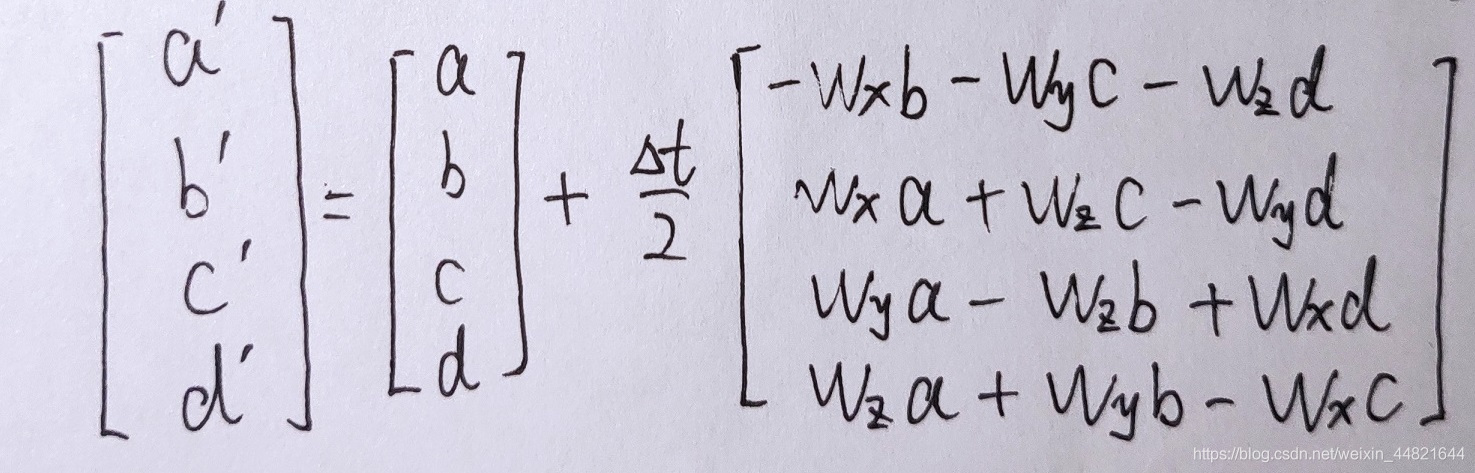 [a′ b′ c′ d′] = [a b c d] + Δt/2 [
-Wxb - Wyc - Wzd
Wxa + Wzc - Wyd
Wya - Wzb + Wxd
Wza + Wyb - Wxc
]
https://blog.csdn.net/weixin_44821644